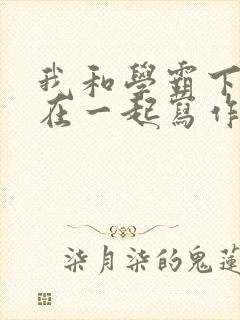 我和學霸下
在一起寫作
柒月柒的鬼蓮